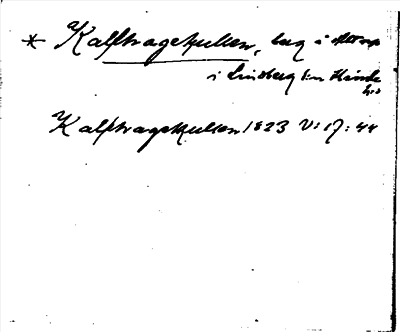 * Kalfhagekullen, berg i Attorp
i Lindberg sn Himle
hd
Kalfhagekullen 1823 V: 17: 44